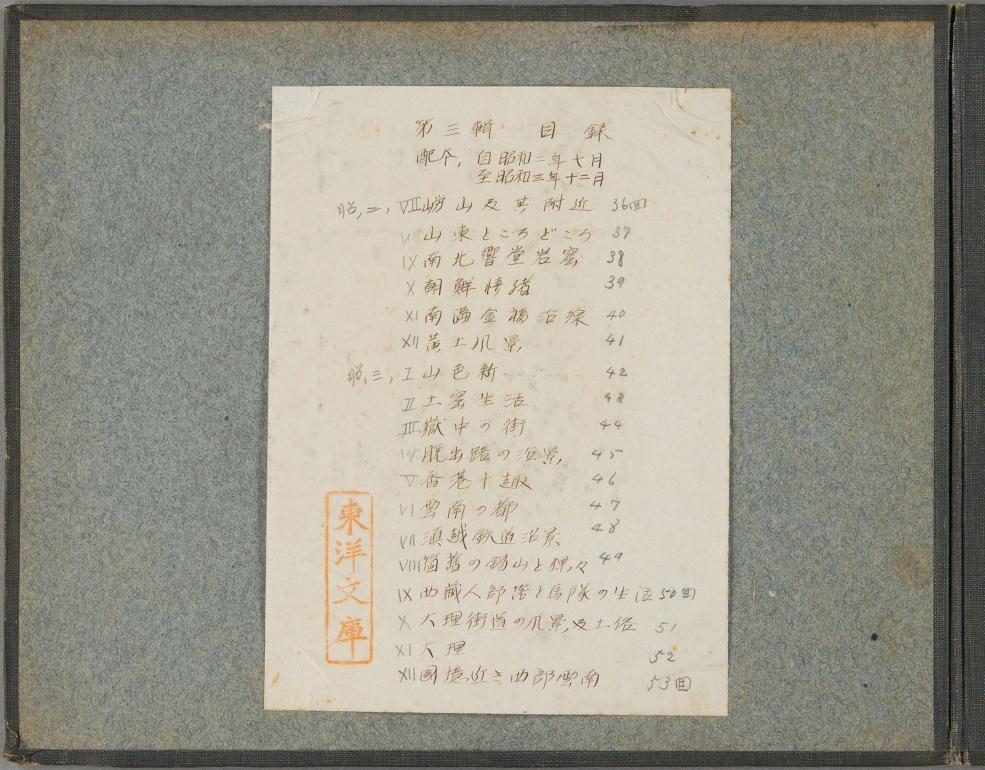 第三輯 目録
配本, 自昭和二年七月
至昭和三年十二月
昭,二, VII 嶗山及其附近 36回
VIII 山東ところどころ 37
IX 南北響堂岩窟 38
X 朝鮮情緒 39
XI 南満金福沿線 40
XII 黄土風景 41
昭,三, I 山色新 42
II 土窟生活 43
III 嶽中の街 44
IV 脱出路の沿景 45
V 香港十趣 46
VI 雲南の都 47
VII 滇越鉄道沿景 48
VIII 箇舊の錫山と猓々 49
IX 西藏人部落と馬隊の生活 50回
X 大理街道の風景及土俗 51
XI 大理 52
XII 國境近き西部雲南 53回
東洋文庫